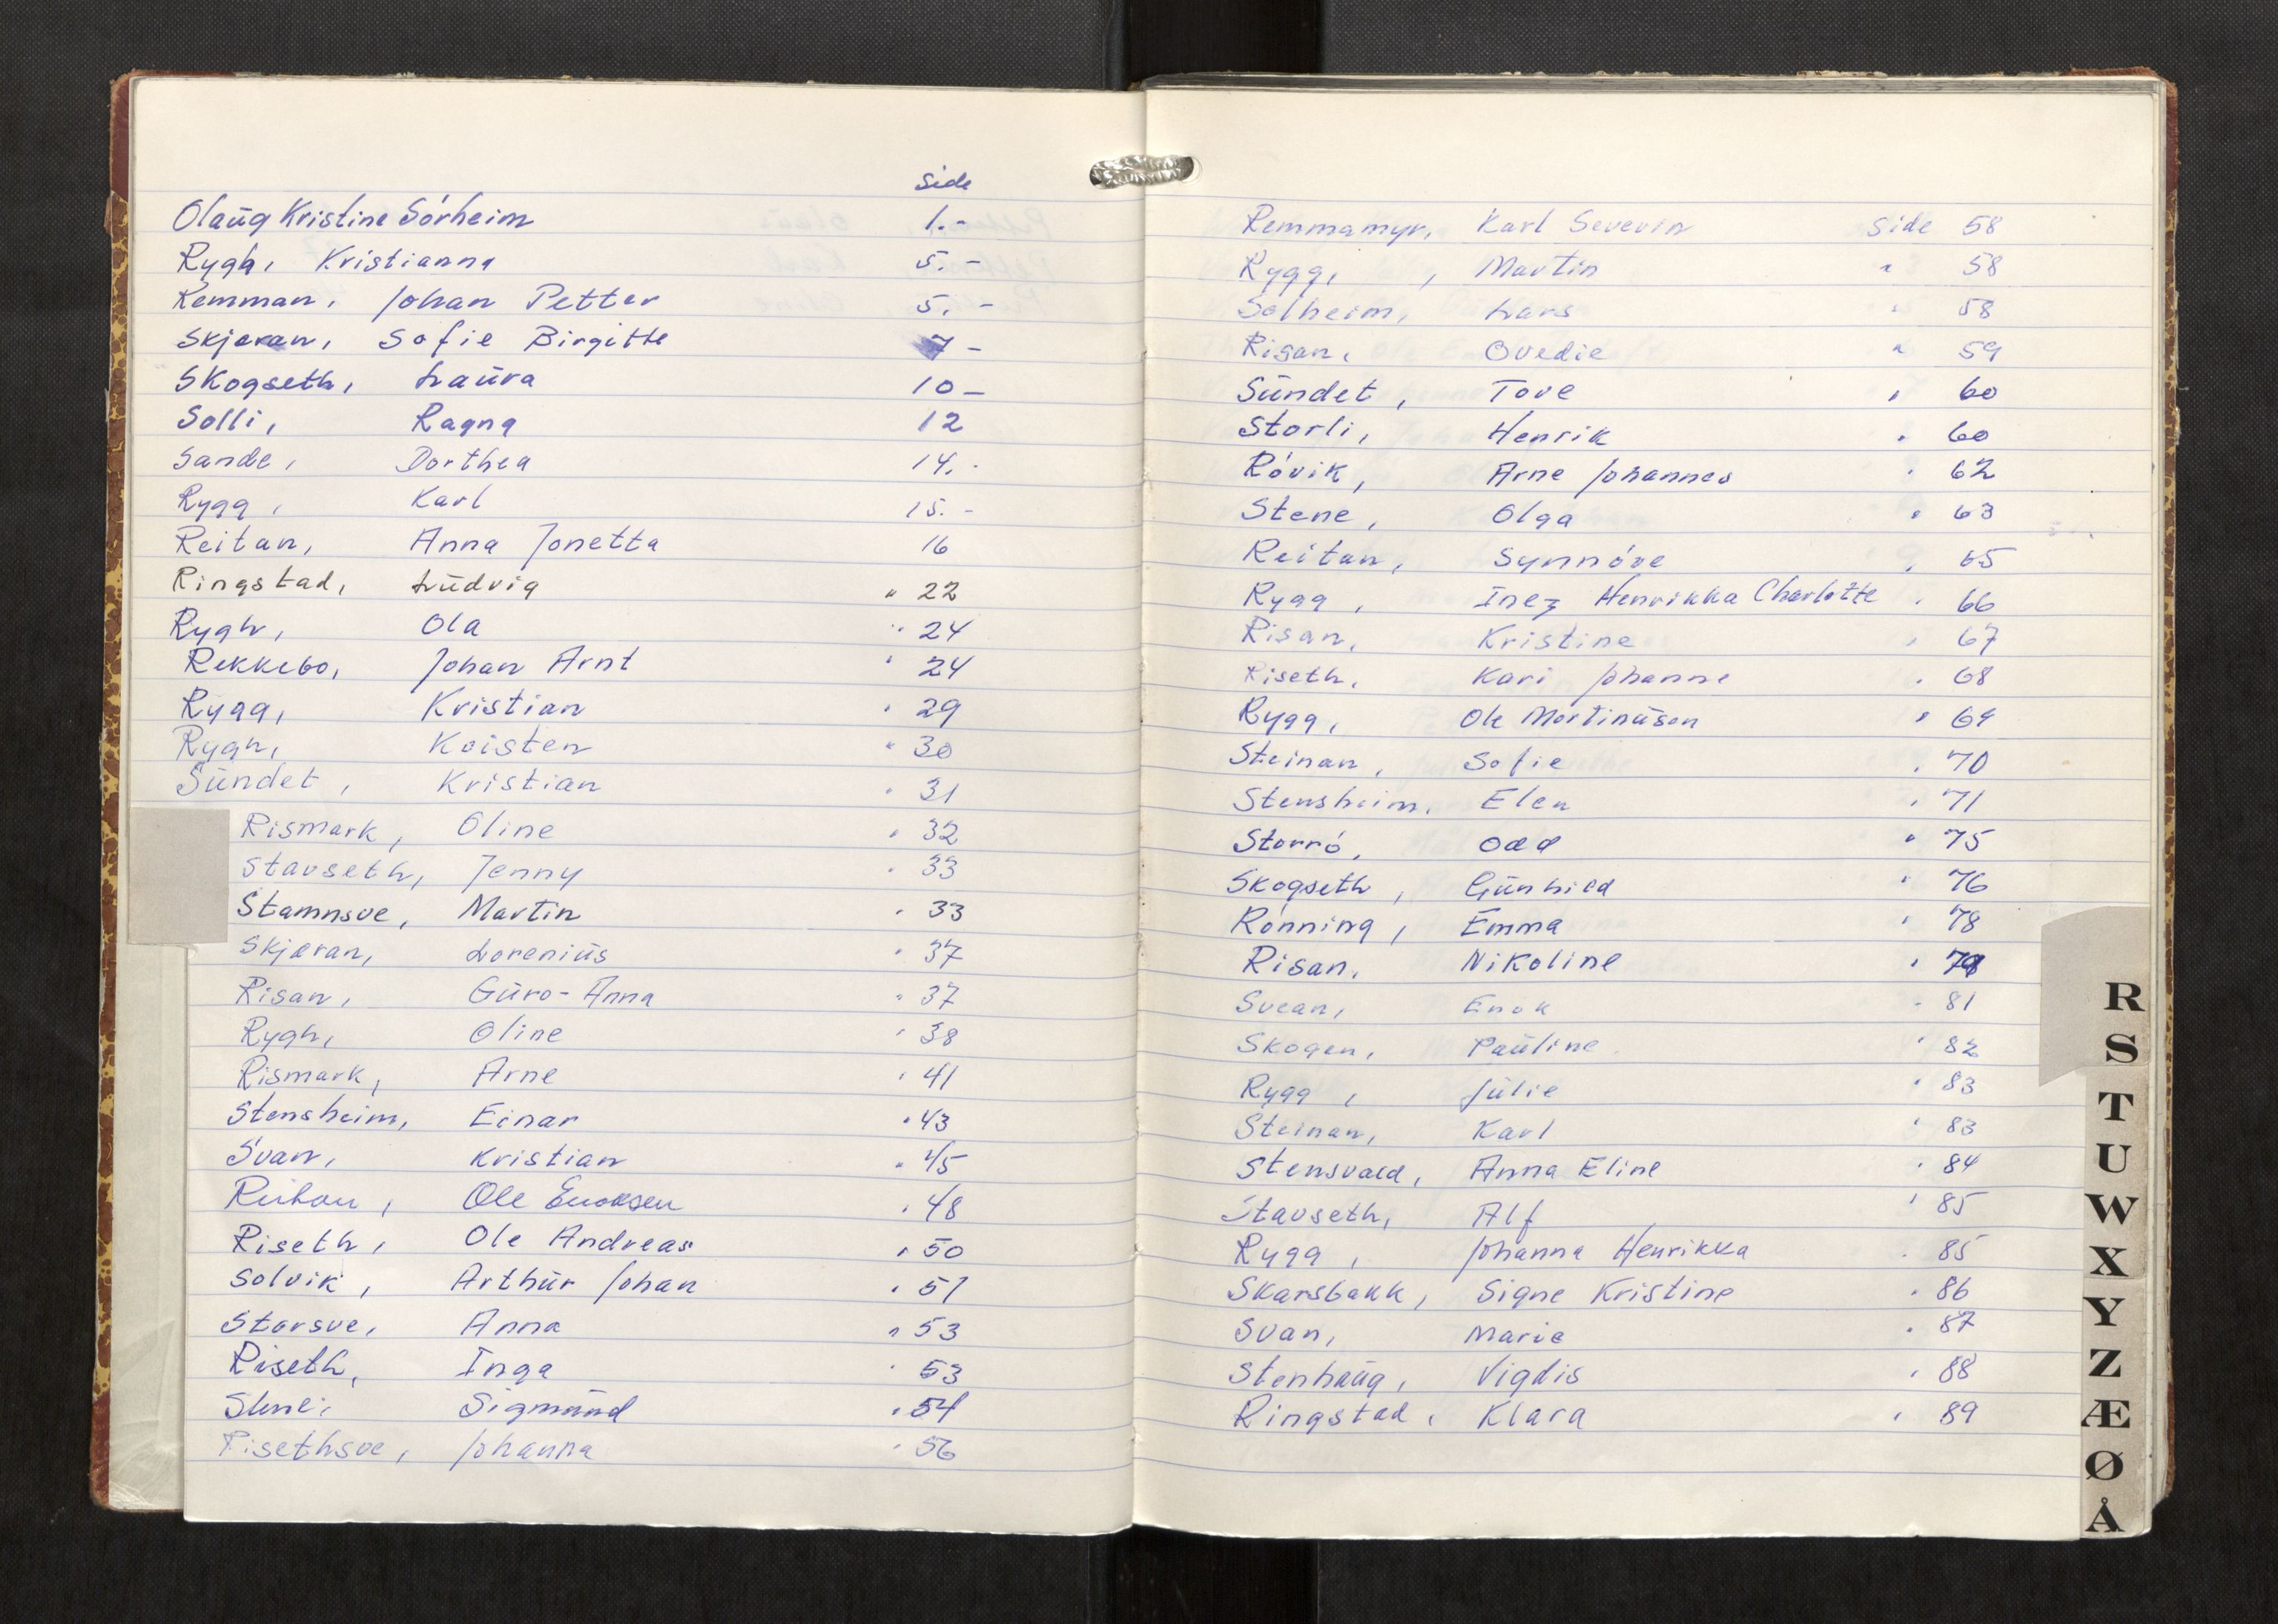 Side
Olaug Kristine Sórheim 1.-
Rygh, Kristianna 5.-
Remman, Johan Petter 5.-
Skjæran, Sofie Birgitte 7 -
Skogseth, Laura 10 -
Solli, Ragna 12
Sande, Dorthea 14.-
Rygg, Karl 15.-
Reitan, Anna Jonetta 16
Ringstad, Ludvig " 22
Rygh, Ola " 24
Rekkebo, Johan Arnt " 24
Rygg, Kristian " 29
Rygh, Kristen " 30
Sundet, Kristian " 31
Rismark, Oline " 32
Stavseth, Jenny " 33
Stamnsve, Martin " 33
Skjæran, Lorenius " 37
Risan, Guro-Anna " 37
Rygh, Oline " 38
Rismark, Arne " 41
Stensheim, Einar " 43
Svan, Kristian " 45
Reitan, Ole Enoksen " 48
Riseth, Ole Andreas " 50
Solvik, Arthur Johan " 51
Storsve, Anna " 53
Riseth, Inga " 53
Stene, Sigmund " 54
Risethsve, Johanna " 56
Remmamyr, Karl Severin Side 58
Rygg, , Martin " 58
Solheim, Lars " 58
Risan, Ovedie " 59
Sundet, Tove " 60
Storli, Henrik " 60
Róvik, Arne Johannes " 62
Stene, Olga " 63
Reitan, Synnóve " 65
Rygg, Inez Henrikka Charlotte " 66
Risan, Kristine " 67
Riseth, Kari Johanne " 68
Rygg, Ole Martinusen " 69
Steinan, Sofie " 70
Stensheim, Elen " 71
Storró, Odd " 75
Skogseth, Gunhild " 76
Rónning, Emma " 78
Risan, Nikoline "
Svean, Enok " 81
Skogen, Pauline " 82
Rygg, Julie " 83
Steinan, Karl " 83
Stensvald, Anna Eline " 84
Stavseth, Alf " 85
Rygg, Johanna Henrikka " 85
Skarsbakk, Signe Kristine " 86
Svan, Marie " 87
Stenhaug, Vigdis " 88
Ringstad, Klara " 89
R
S
T
U
W
X
Y
Z
Æ
Ø
Å